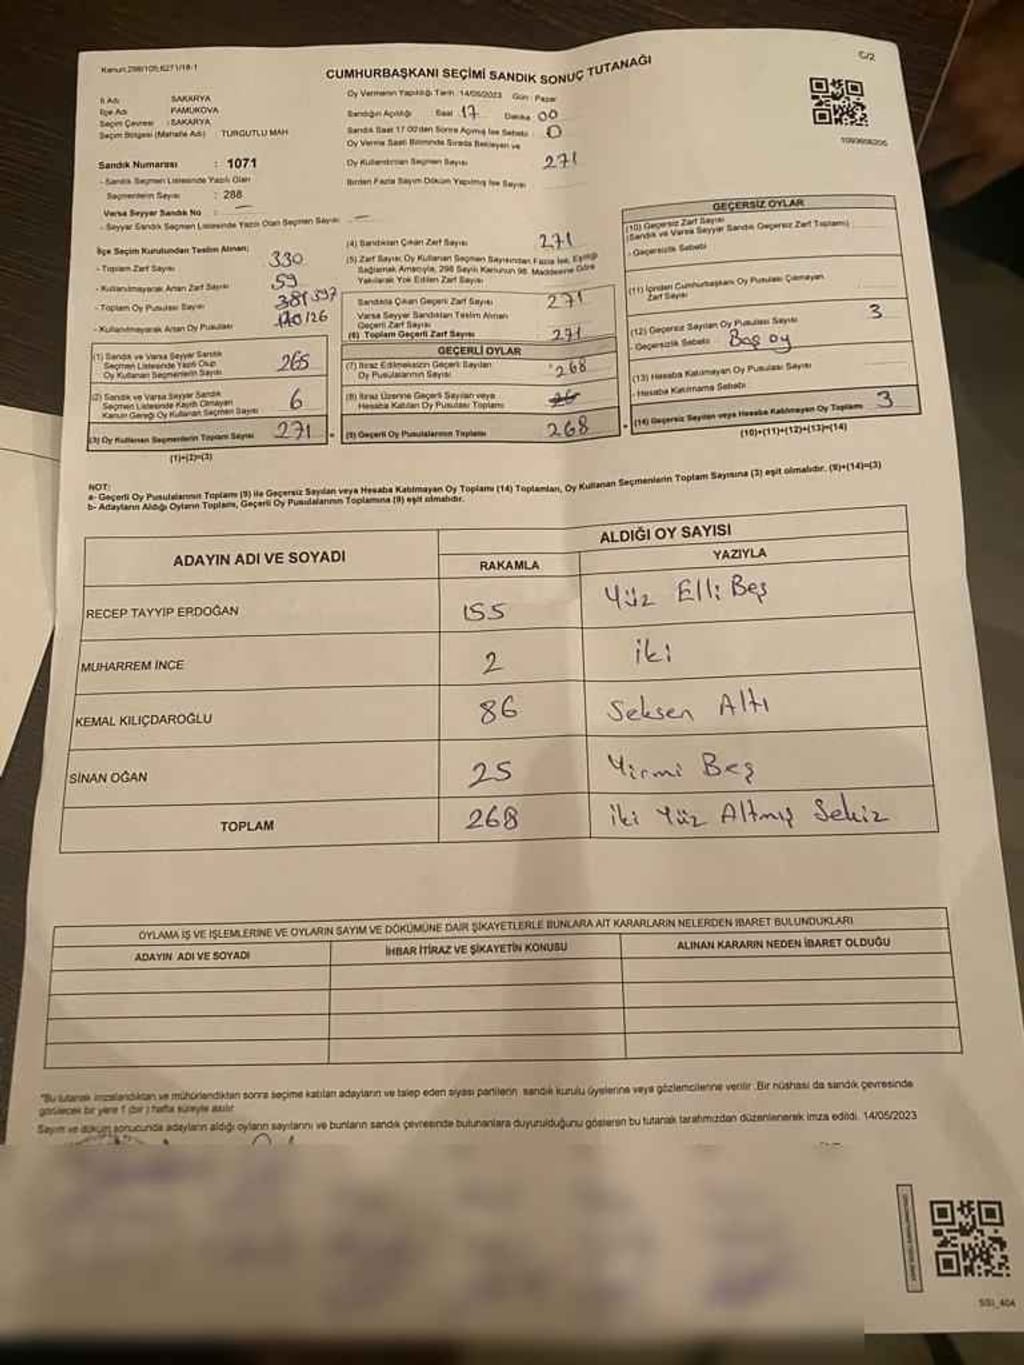 Kanun:298/105;6271/18-1
C/2
CUMHURBAŞKANI SEÇİMİ SANDIK SONUÇ TUTANAĞI
İl Adı : SAKARYA
İlçe Adı : PAMUKOVA
Seçim Çevresi : SAKARYA
Seçim Bölgesi (Mahalle Adı) : TURGUTLU MAH
Sandık Numarası : 1071
- Sandık Seçmen Listesinde Yazılı Olan
Seçmenlerin Sayısı : 288
Varsa Seyyar Sandık No : —
- Seyyar Sandık Seçmen Listesinde Yazılı Olan Seçmen Sayısı : —
Oy Vermenin Yapıldığı Tarih :14/05/2023 Gün : Pazar
Sandığın Açıldığı Saat 17 Dakika 00
Sandık Saat 17:00'den Sonra Açılmış İse Sebebi : 0
Oy Verme Saati Bitiminde Sırada Bekleyen ve
Oy Kullandırılan Seçmen Sayısı 271
Birden Fazla Sayım Döküm Yapılmış İse Sayısı
İlçe Seçim Kurulundan Teslim Alınan;
- Toplam Zarf Sayısı 330
- Kullanılmayarak Artan Zarf Sayısı 59
- Toplam Oy Pusulası Sayısı 397
- Kullanılmayarak Artan Oy Pusulası 126
(1) Sandık ve Varsa Seyyar Sandık
Seçmen Listesinde Yazılı Olup
Oy Kullanan Seçmenlerin Sayısı 265
(2) Sandık ve Varsa Seyyar Sandık
Seçmen Listesinde Kayıtlı Olmayan
Kanun Gereği Oy Kullanan Seçmen Sayısı 6
(3) Oy Kullanan Seçmenlerin Toplam Sayısı 271
(1)+(2)=(3)
(4) Sandıktan Çıkan Zarf Sayısı 271
(5) Zarf Sayısı Oy Kullanan Seçmen Sayısından Fazla İse, Eşitliği
Sağlamak Amacıyla, 298 Sayılı Kanunun 98. Maddesine Göre
Yakılarak Yok Edilen Zarf Sayısı
Sandıkta Çıkan Geçerli Zarf Sayısı 271
Varsa Seyyar Sandıktan Teslim Alınan
Geçerli Zarf Sayısı
(6) Toplam Geçerli Zarf Sayısı 271
GEÇERLİ OYLAR
(7) İtiraz Edilmeksizin Geçerli Sayılan
Oy Pusulalarının Sayısı 268
(8) İtiraz Üzerine Geçerli Sayılan veya
Hesaba Katılan Oy Pusulası Toplamı
(9) Geçerli Oy Pusulalarının Toplamı 268
GEÇERSİZ OYLAR
(10) Geçersiz Zarf Sayısı
(Sandık ve Varsa Seyyar Sandık Geçersiz Zarf Toplamı)
- Geçersizlik Sebebi
(11) İçinden Cumhurbaşkanı Oy Pusulası Çıkmayan
Zarf Sayısı
(12) Geçersiz Sayılan Oy Pusulası Sayısı 3
- Geçersizlik Sebebi Boş oy
(13) Hesaba Katılmayan Oy Pusulası Sayısı
- Hesaba Katılmama Sebebi
(14) Geçersiz Sayılan veya Hesaba Katılmayan Oy Toplamı 3
(10)+(11)+(12)+(13)=(14)
NOT:
a- Geçerli Oy Pusulalarının Toplamı (9) ile Geçersiz Sayılan veya Hesaba Katılmayan Oy Toplamı (14) Toplamları, Oy Kullanan Seçmenlerin Toplam Sayısına (3) eşit olmalıdır. (9)+(14)=(3)
b- Adayların Aldığı Oyların Toplamı, Geçerli Oy Pusulalarının Toplamına (9) eşit olmalıdır.
ADAYIN ADI VE SOYADI
ALDIĞI OY SAYISI
RAKAMLA YAZIYLA
RECEP TAYYİP ERDOĞAN 155 Yüz Elli Beş
MUHARREM İNCE 2 iki
KEMAL KILIÇDAROĞLU 86 Seksen Altı
SİNAN OĞAN 25 Yirmi Beş
TOPLAM 268 iki Yüz Altmış Sekiz
OYLAMA İŞ VE İŞLEMLERİNE VE OYLARIN SAYIM VE DÖKÜMÜNE DAİR ŞİKAYETLERLE BUNLARA AİT KARARLARIN NELERDEN İBARET BULUNDUKLARI
ADAYIN ADI VE SOYADI İHBAR İTİRAZ VE ŞİKAYETİN KONUSU ALINAN KARARIN NEDEN İBARET OLDUĞU
"Bu tutanak imzalandıktan ve mühürlendikten sonra seçime katılan adayların ve talep eden siyasi partilerin sandık kurulu üyelerine veya gözlemcilerine verilir. Bir nüshası da sandık çevresinde
görülecek bir yere 1 (bir) hafta süreyle asılır.
Sayım ve döküm sonucunda adayların aldığı oyların sayılarını ve bunların sandık çevresinde bulunanlara duyurulduğunu gösteren bu tutanak tarafımızdan düzenlenerek imza edildi. 14/05/2023
SSI_404